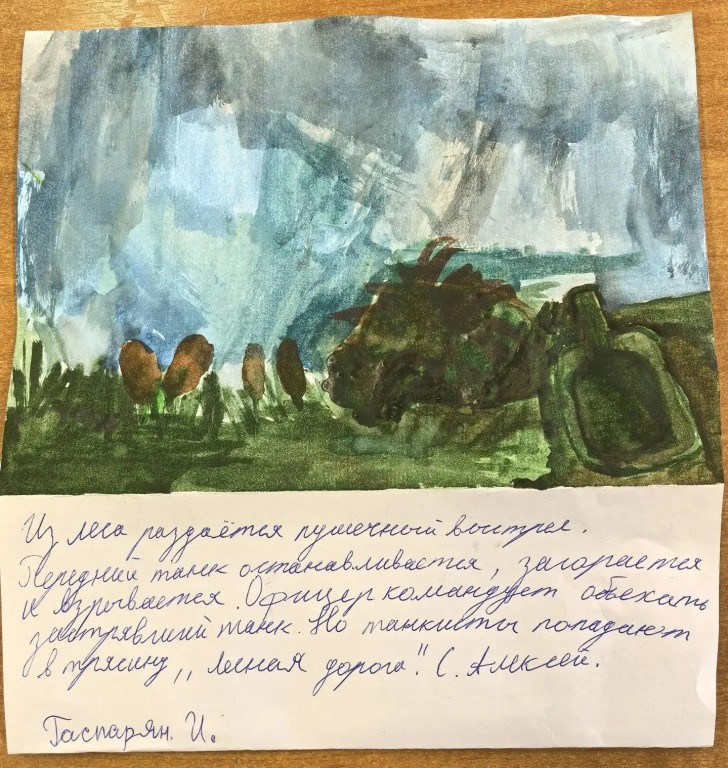 Из леса раздаётся пушечный выстрел.
Передний танк останавливается, загорается
и взрывается. Офицер командует объехать
застрявший танк. Но танкисты попадают
в трясину „Лесная дорога". С. Алексей.
Гаспарян. И.